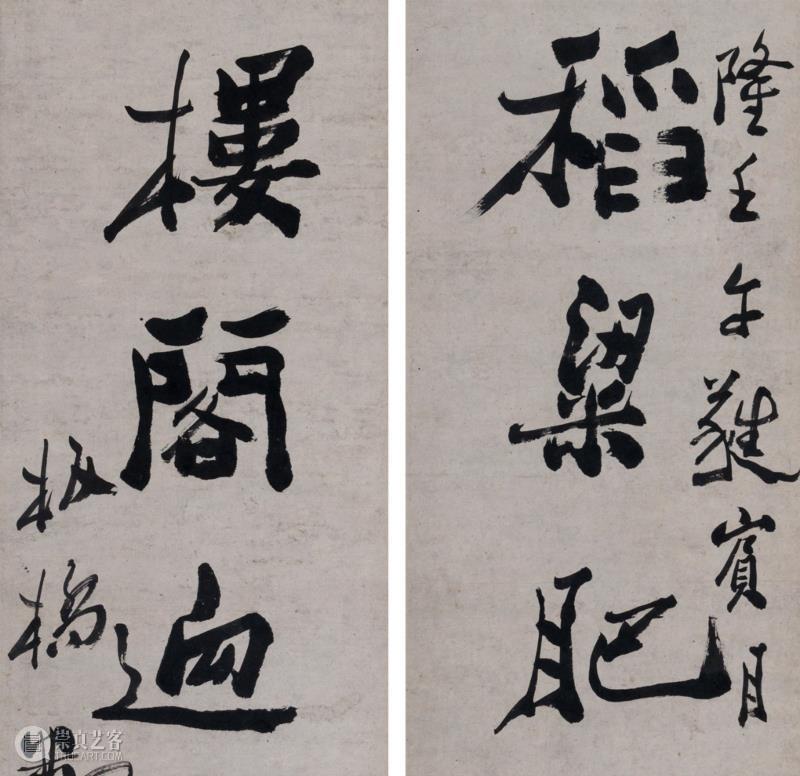 隆壬午蕤賓月
稻粱肥
樓閣逈
板橋
崇真艺客